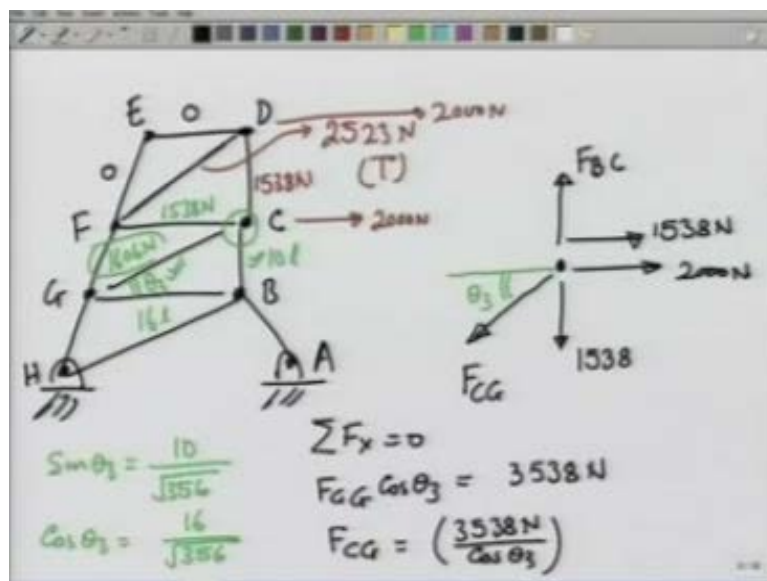 E O D → 2000N
2523N
O
(T)
1538N
1538N
F
C → 2000N
1806N
10l
θ3
G
B
16l
H
A
FBC
1538N
2000N
θ3
FCG
1538
Sinθ3 = 10/√356
Cosθ3 = 16/√356
∑Fx = 0
FCG Cosθ3 = 3538N
FCG = (3538N/Cosθ3)